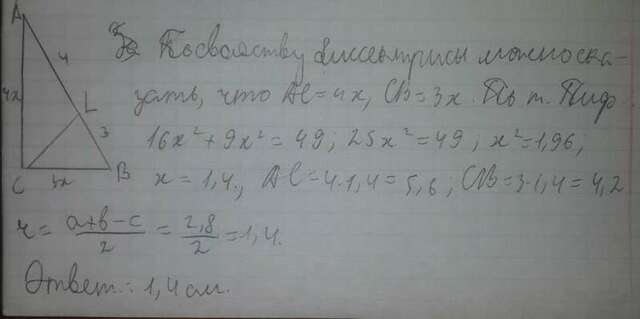 A
4
4x
L
3
C
3x
B
По свойству биссектрисы можно ска-
зать, что AC=4x, CB=3x. По т. Пиф.
16x²+9x²=49; 25x²=49; x²=1,96;
x=1,4; AC=4·1,4=5,6; CB=3·1,4=4,2
r = (a+b-c)/2 = 2,8/2 = 1,4.
Ответ: 1,4 см.